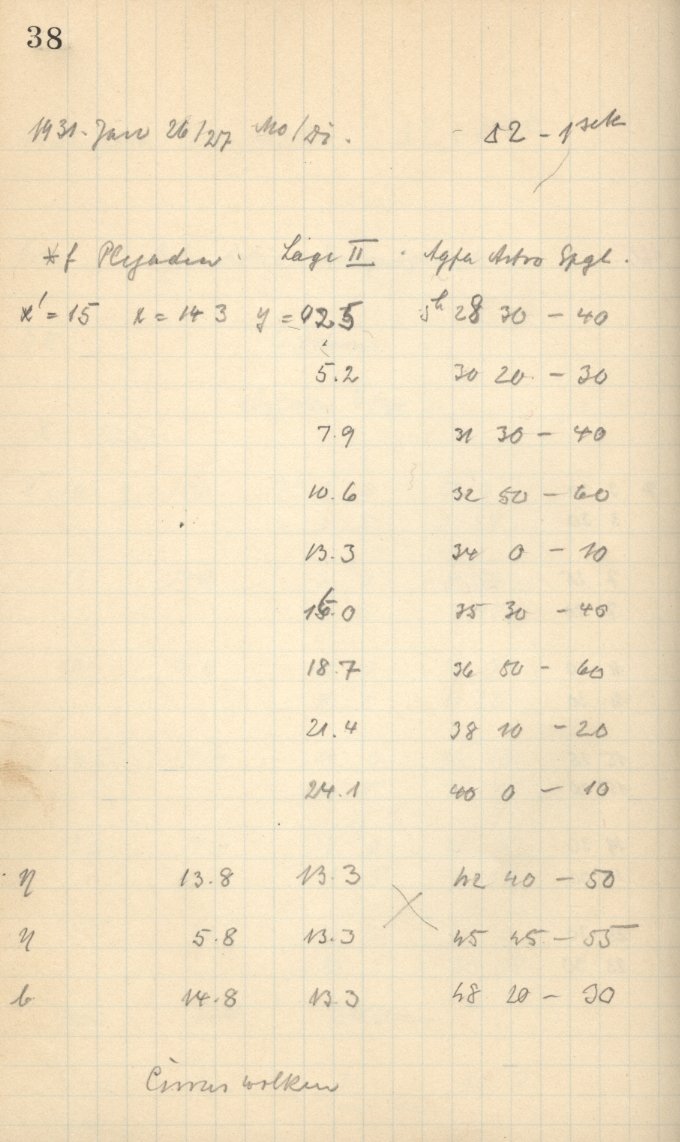 38
1931. Jan 26/27 Mo/Di. 52 - 1 sek
*f Plejaden. Lage II. Agfa Astro Spgl.
x' = 15 x = 14 3 y = 02 5 5h 28 30 - 40
5.2 30 20 - 30
7.9 31 30 - 40
10.6 32 50 - 60
13.3 34 0 - 10
16.0 35 30 - 40
18.7 36 50 - 60
21.4 38 10 - 20
24.1 40 0 - 10
η 13.8 13.3 42 40 - 50
η 5.8 13.3 45 45 - 55
b 14.8 13.3 48 20 - 30
Cirruswolken